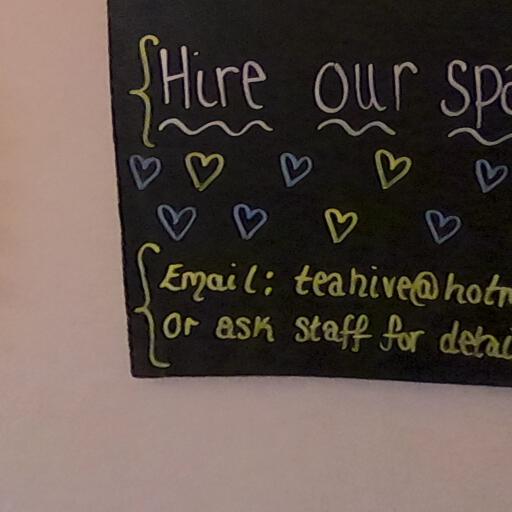 Hire our spa
Email: teahive@hotm
or ask staff for detai